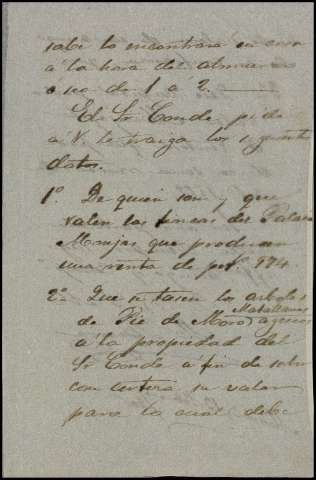 sabe lo encontrara en casa
á la hora del almuerzo
ó sea de 1 a 2.
El Sr Conde pide
á V. le traiga los siguientes
datos.
1º De quien son y que
valen las fincas del Palacio
Monjas que producen
una renta de 994
2º Que se tasen los arboles
de Pie de Moro
á la propiedad del
Sr Conde á fin de saber
con certeza su valor
para lo cual debe